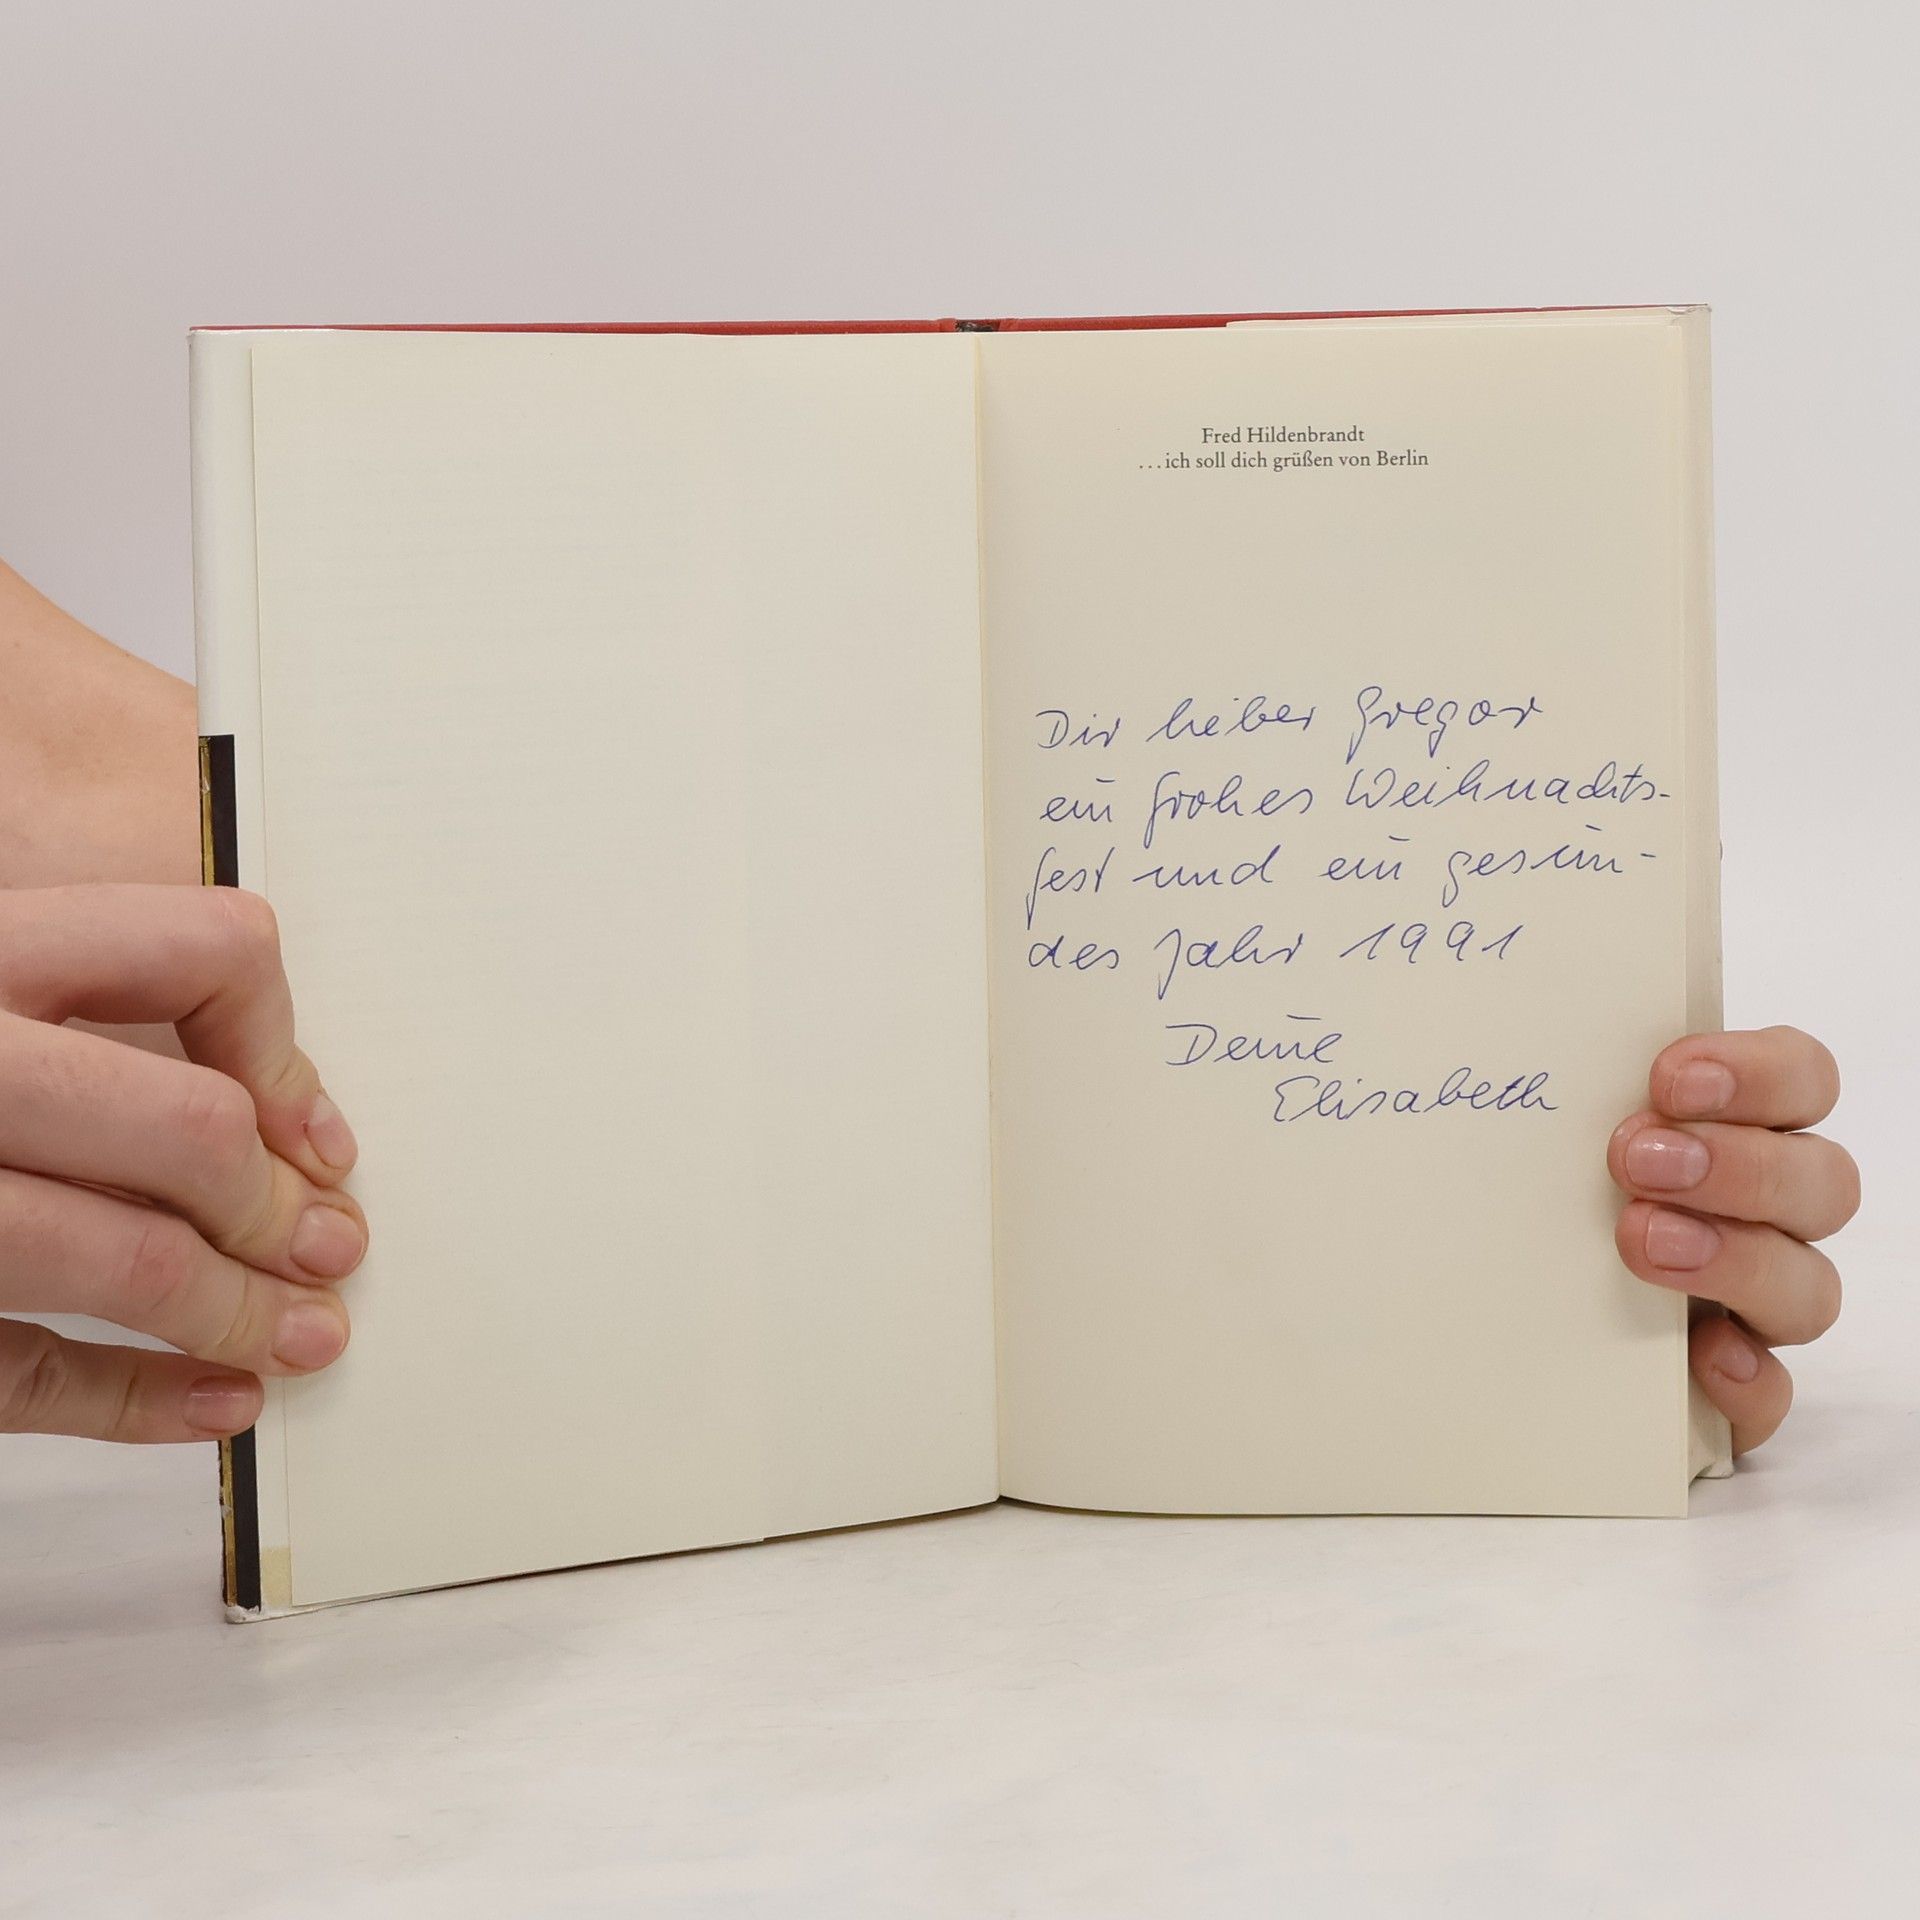 Fred Hildenbrandt
...ich soll dich grüßen von Berlin
Dir lieber Gregor
ein frohes Weihnachts-
fest und ein gesun-
des Jahr 1991
Deine
Elisabeth